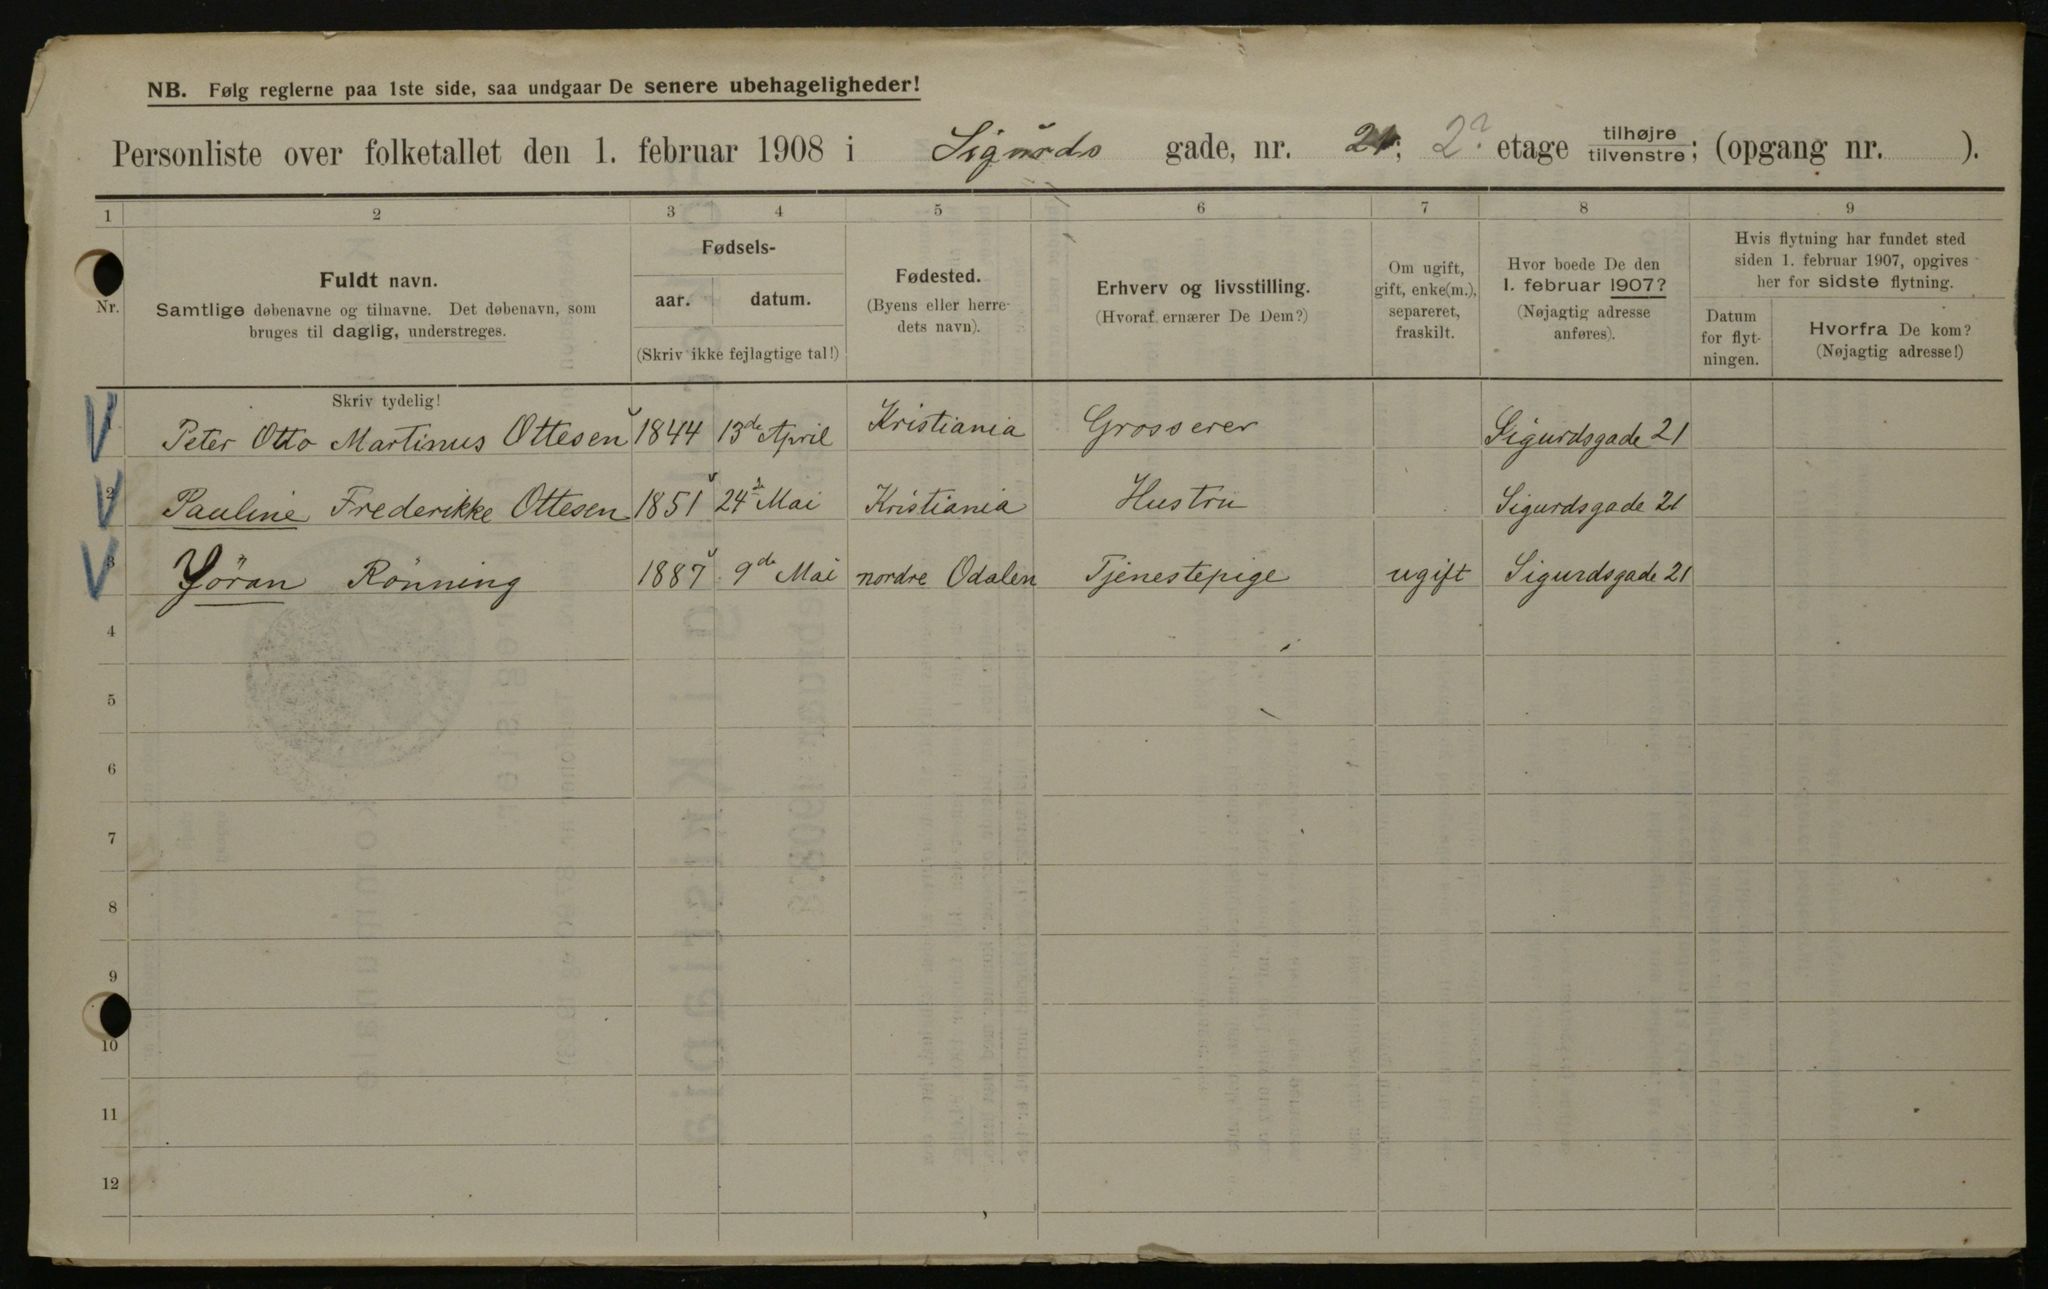 NB. Følg reglerne paa 1ste side, saa undgaar De senere ubehageligheder!
Personliste over folketallet den 1. februar 1908 i Sigurds gade, nr. 21; 2? etage tilhøjre tilvenstre; (opgang nr. ).
1 2 3 4 5 6 7 8 9
Nr.
Fuldt navn.
Samtlige døbenavne og tilnavne. Det døbenavn, som
bruges til daglig, understreges.
Skriv tydelig!
Fødsels-
aar. datum.
(Skriv ikke fejlagtige tal!)
Fødested.
(Byens eller herre-
dets navn).
Erhverv og livsstilling.
(Hvoraf ernærer De Dem?)
Om ugift,
gift, enke(m.),
separeret,
fraskilt.
Hvor boede De den
1. februar 1907?
(Nøjagtig adresse
anføres).
Hvis flytning har fundet sted
siden 1. februar 1907, opgives
her for sidste flytning.
Datum
for flyt-
ningen.
Hvorfra De kom?
(Nøjagtig adresse!)
1 Peter Otto Martinus Ottesen 1844 13de April Kristiania Grosserer Sigurdsgade 21
2 Pauline Frederikke Ottesen 1851 24de Mai Kristiania Hustru Sigurdsgade 21
3 Jöran Rönning 1887 9de Mai nordre Odalen Tjenestepige ugift Sigurdsgade 21
4
5
6
7
8
9
10
11
12